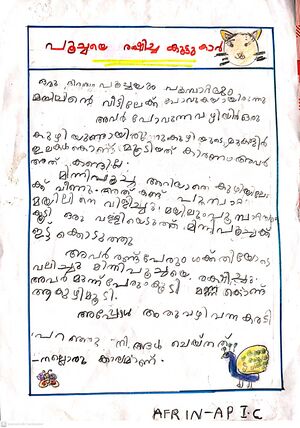 പൂച്ചയെ രക്ഷിച്ച കൂട്ടുകാർ
ഒരു ദിവസം പൂച്ചയും പൂമ്പാറ്റയും
മയിലിന്റെ വീട്ടിലേക്ക് പോവുകയായിരുന്നു
അവർ പോവുന്ന വഴിയിൽ ഒരു
കുഴിയുണ്ടായിരുന്നു കുഴിയുടെ മുകളിൽ
ഇലകൾ കൊണ്ട് മൂടിയത് കാരണം അവർ
അത് കണ്ടില്ല
മിന്നിപൂച്ച അറിയാതെ കുഴിയിലേ
ക്ക് വീണു അത് കണ്ട്
മയിലിനെ വിളിച്ചു മയിലും
കൂടി ഒരു വള്ളിയെടുത്ത് മിന്നി പൂച്ചക്ക്
ഇട്ട് കൊടുത്തു
അവർ രണ്ട് പേരും ശക്തിയോടെ
വലിച്ചു മിന്നിപൂച്ചയെ രക്ഷിച്ചു
അവർ മൂന്ന് പേരും കൂടി മണ്ണ് കൊണ്ട്
ആ കുഴി മൂടി.
അപ്പോൾ അതു വഴി വന്ന കരടി
പറഞ്ഞു നിങ്ങൾ ചെയ്തത്
നല്ലൊരു കാര്യമാണ്.
AFRIN-AP I.C